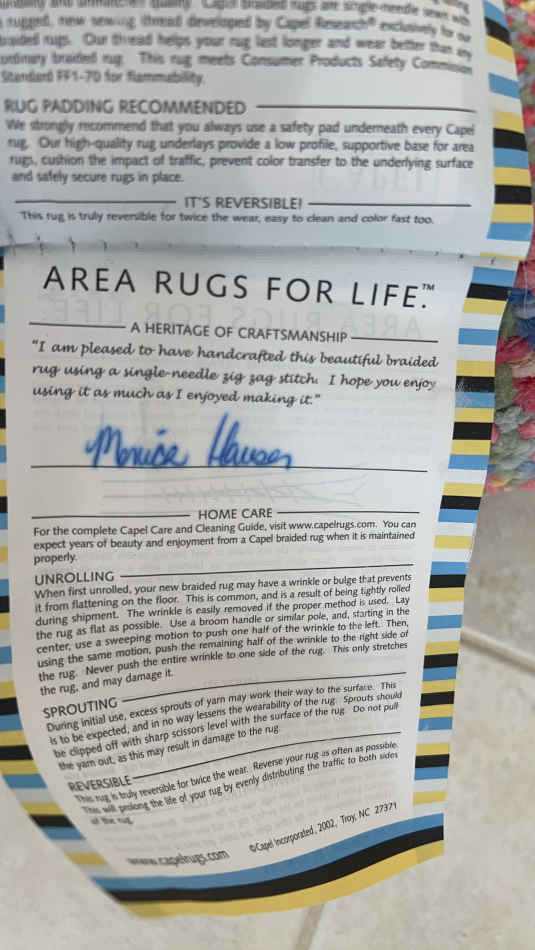 durability and unmatched quality. Capel braided rugs are single-needle sewn with
a rugged, new sewing thread developed by Capel Research® exclusively for our
braided rugs. Our thread helps your rug last longer and wear better than any
ordinary braided rug. This rug meets Consumer Products Safety Commission
Standard FF1-70 for flammability.
RUG PADDING RECOMMENDED
We strongly recommend that you always use a safety pad underneath every Capel
rug. Our high-quality rug underlays provide a low profile, supportive base for area
rugs, cushion the impact of traffic, prevent color transfer to the underlying surface
and safely secure rugs in place.
IT'S REVERSIBLE!
This rug is truly reversible for twice the wear, easy to clean and color fast too.
AREA RUGS FOR LIFE.™
A HERITAGE OF CRAFTSMANSHIP
"I am pleased to have handcrafted this beautiful braided
rug using a single-needle zig zag stitch. I hope you enjoy
using it as much as I enjoyed making it."
Monica Hauser
HOME CARE
For the complete Capel Care and Cleaning Guide, visit www.capelrugs.com. You can
expect years of beauty and enjoyment from a Capel braided rug when it is maintained
properly.
UNROLLING
When first unrolled, your new braided rug may have a wrinkle or bulge that prevents
it from flattening on the floor. This is common, and is a result of being tightly rolled
during shipment. The wrinkle is easily removed if the proper method is used. Lay
the rug as flat as possible. Use a broom handle or similar pole, and, starting in the
center, use a sweeping motion to push one half of the wrinkle to the left. Then,
using the same motion, push the remaining half of the wrinkle to the right side of
the rug. Never push the entire wrinkle to one side of the rug. This only stretches
the rug, and may damage it.
SPROUTING
During initial use, excess sprouts of yarn may work their way to the surface. This
is to be expected, and in no way lessens the wearability of the rug. Sprouts should
be clipped off with sharp scissors level with the surface of the rug. Do not pull
the yarn out, as this may result in damage to the rug.
REVERSIBLE
This rug is truly reversible for twice the wear. Reverse your rug as often as possible.
This will prolong the life of your rug by evenly distributing the traffic to both sides
of the rug.
www.capelrugs.com ©Capel Incorporated, 2002, Troy, NC 27371